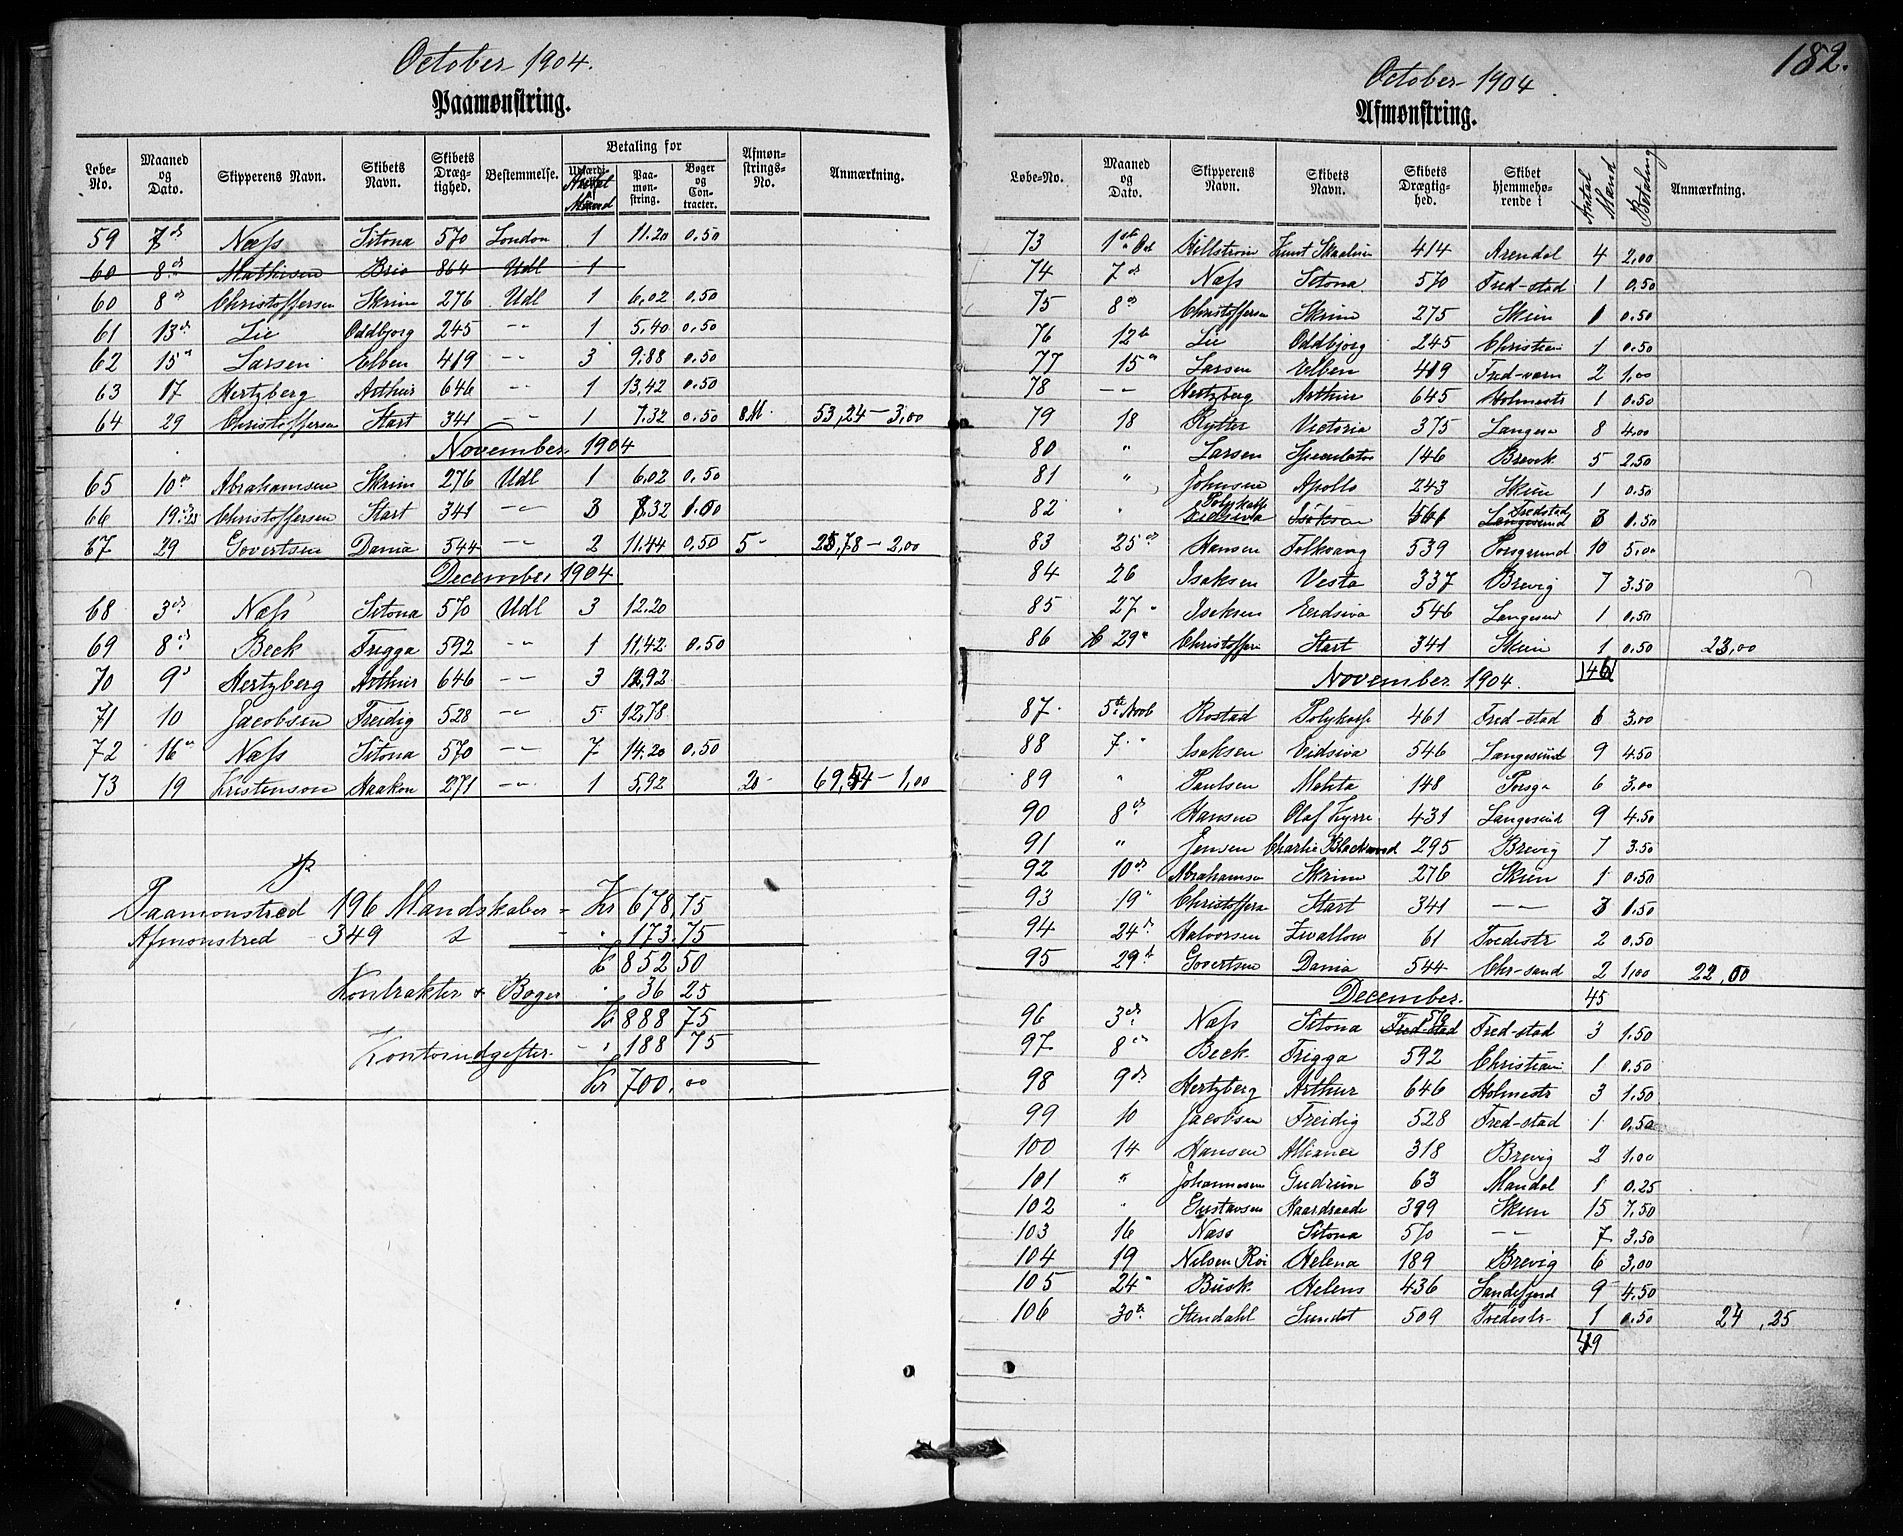 October 1904.
Paamønstring.
Løbe-No. | Maaned og Dato. | Skipperens Navn. | Skibets Navn. | Skibets Dræg-tighed. | Bestemmelse. | Betaling for | Antal Mænd | Paa-mon-string. | Bøger og Con-tracter. | Afmøn-strings-No. | Anmærkning.
59 7de Næss Sitona 570 London 1 11.20 0.50
60 8de Mathisen Brio 864 Udl 1
60 8de Christoffersen Skrim 276 Udl 1 6,02 0.50
61 13de Lie Oddbjorg 245 -"- 1 5,40 0.50
62 15" Larsen Elben 419 -"- 3 9.88 0.50
63 17 Hertzberg Arthur 646 -"- 1 13,42 0.50
64 29 Christoffersen Start 341 -"- 1 7.32 0.50 8M. 53,24 - 3,00
November 1904
65 10de Abrahamsen Skrim 276 Udl 1 6,02 0.50
66 19de Christoffersen Start 341 -"- 3 8.32 1.00
67 29 Govertsen Dania 544 -"- 2 11.44 0,50 5- 25,78 - 2,00
December 1904
68 3de Næss Sitona 570 Udl 3 12.20
69 8de Beck Frigga 592 -"- 1 11,42 0.50
70 9" Hertzberg Arthur 646 -"- 3 12,92
71 10 Jacobsen Freidig 528 -"- 5 12,78
72 16" Næss Sitona 570 -"- 7 14.20 0.50
73 19 Kristenson Haakon 271 -"- 1 5,92 20- 69,54 - 1,00
Paamonstred 196 Mandskaber - Kr 678,75
Afmonstred - 349 - " 173.75
Kr 852 50
Kontrakter & Bøger " 36 25
Kr 888 75
Kontorudgifter - " 188 75
Kr 700.00
182.
October 1904
Afmønstring.
Løbe-No. | Maaned og Dato. | Skipperens Navn. | Skibets Navn. | Skibets Drægtig-hed. | Skibet hjemmehø-rende i | Antal Mænd | Betaling | Anmærkning.
73 1ste Oct Killstrøm Knut Skaaluren 414 Arendal 4 2,00
74 7de Næss Sitona 570 Fred-stad 1 0.50
75 8de Christoffersen Skrim 275 Skien 1 0.50
76 12te Lie Oddbjorg 245 Christian 1 0.50
77 15de Larsen Elben 419 Fred-værn 2 1,00
78 -"- Hertzberg Arthur 645 Holmestr 1 0.50
79 18 Rytter Victoria 375 Langesu 8 4,00
80 " Larsen Speculator 146 Brevik 5 2.50
81 " Johnsen Apollo 243 Skien 1 0.50
82 " Polykarp Eidsiva 461 Fredstad Langesund 3 1.50
83 25de Hansen Folkvang 539 Porsgrund 10 5,00
84 26 Isaksen Vesta 337 Brevig 7 3.50
85 27" Isaksen Eidsiva 546 Langesund 1 0,50
86 29" Christoffersen Start 341 Skien 1 0,50 23,00
46
November 1904.
87 5te Novb Rostad Polykarp 461 Fred-stad 6 3,00
88 7" Isaksen Eidsiva 546 Langesund 9 4.50
89 " Paulsen Mahta 148 Porsgr 6 3,00
90 8de Hansen Olaf Kyrre 431 Langesund 9 4.50
91 " Jensen Charlie Blackwood 295 Brevig 7 3.50
92 10de Abrahamsen Skrim 276 Skien 1 0.50
93 19" Christoffersen Start 341 -"- 3 1.50
94 24de Halvorsen Zwallow 61 Tvedestr 2 0,50
95 29de Govertsen Dania 544 Chr-sand 2 1,00 22,00
December. 45
96 3de Næss Sitona Fred-stad 570 Fred-stad 3 1.50
97 8de Beck Frigga 592 Christian 1 0.50
98 9de Hertzberg Arthur 646 Holmestr 3 1.50
99 10 Jacobsen Freidig 528 Fred-stad 1 0.50
100 14 Hansen Alliance 318 Brevig 2 1.00
101 " Johannesen Gudrun 63 Mandal 1 0.25
102 " Gustavsen Haardraade 399 Skien 15 7.50
103 16 Næss Sitona 570 -"- 7 3.50
104 19 Nilsen Røi Helena 189 Brevig 6 3,00
105 24" Busk Helens 436 Sandefjord 9 4.50
106 30te Stendahl Sundet 509 Tvedestr. 1 0.50 24,25
49